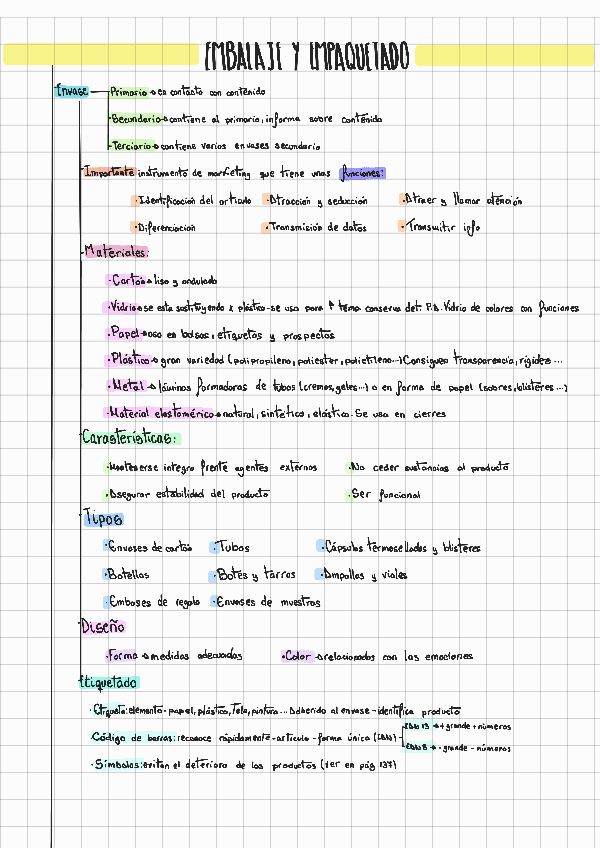 EMBALAJE Y EMPAQUETADO
Envase
Primario → en contacto con contenido
Secundario → contiene al primario, informa sobre contenido
Terciario → contiene varios envases secundario
Importante instrumento de marketing que tiene unas funciones:
· Identificación del artículo · Atracción y seducción · Atraer y llamar atención
· Diferenciación · Transmisión de datos · Transmitir info
Materiales:
· Cartón → liso y ondulado
· Vidrio → se esta sustituyendo x plástico - se usa para ↑ temp. conserva det. P.A. Vidrio de colores con funciones
· Papel → uso en bolsas, etiquetas y prospectos
· Plástico → gran variedad (polipropileno, poliester, polietileno...) Consigues transparencia, rigidez...
· Metal → láminas formadoras de tubos (cremas, geles...) o en forma de papel (sobres, blísteres...)
· Material elastomérico → natural, sintético, elástico. Se usa en cierres
Características:
· Mantenerse integro frente agentes externos · No ceder sustancias al producto
· Asegurar estabilidad del producto · Ser funcional
Tipos
· Envases de cartón · Tubos · Cápsulas termoselladas y blísteres
· Botellas · Botes y tarros · Ampollas y viales
· Embases de regalo · Envases de muestras
Diseño
· Forma → medidas adecuadas · Color → relacionados con las emociones
Etiquetado
· Etiqueta: elemento - papel, plástico, tela, pintura... Adherido al envase - identifica producto
· Código de barras: reconoce rápidamente - artículo - forma única (EAN)
EAN 13 → + grande + números
EAN 8 → - grande - números
· Símbolos: evitan el deterioro de los productos (ver en pág 137)